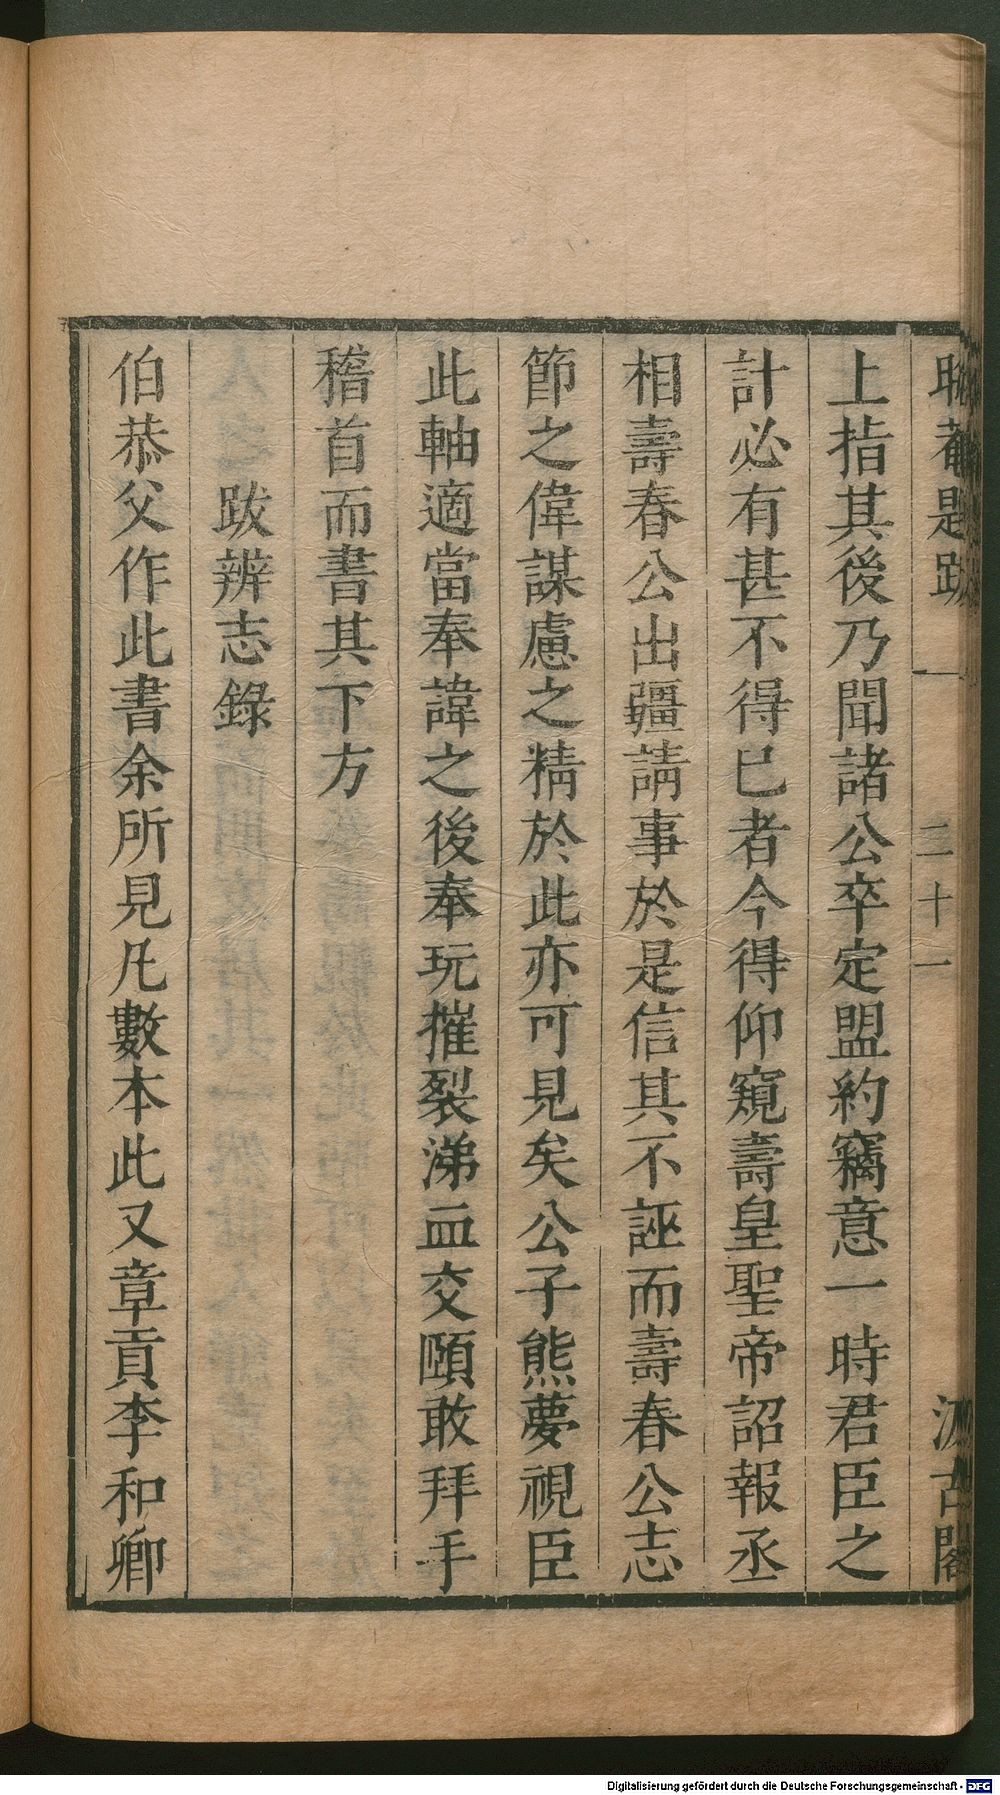 菴題跋 一 二十一 汲古閣
上指其後乃聞諸公卒定盟約竊意一時君臣之
計必有甚不得已者今得仰窺壽皇聖帝詔報丞
相壽春公出疆請事於是信其不誣而壽春公志
節之偉謀慮之精於此亦可見矣公子熊夢視臣
此軸適當奉諱之後奉玩摧裂涕血交頤敢拜手
稽首而書其下方
跋辨志錄
伯恭父作此書余所見凡數本此又章貢李和卿
Digitalisierung gefördert durch die Deutsche Forschungsgemeinschaft - DFG